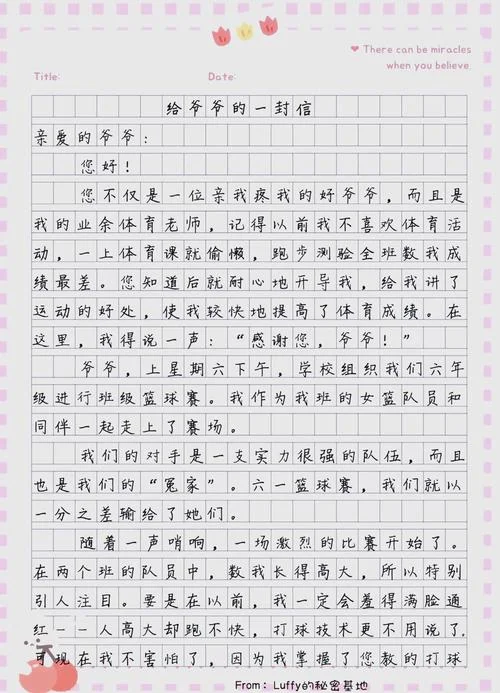 ❤ There can be miracles
when you believe.
Title:
Date:
给爷爷的一封信
亲爱的爷爷：
您好！
您不仅是一位亲我疼我的好爷爷，而且是
我的业余体育老师，记得以前我不喜欢体育活
动，一上体育课就偷懒，跑步测验全班数我成
绩最差。您知道后就耐心地开导我，给我讲了
运动的好处，使我较快地提高了体育成绩。在
这里，我得说一声：“感谢您，爷爷！”
爷爷，上星期六下午，学校组织我们六年
级进行班级篮球赛。我作为我班的女篮队员和
同伴一起走上了赛场。
我们的对手是一支实力很强的队伍，而且
也是我们的“冤家”。六一篮球赛，我们就以
一分之差输给了她们。
随着一声哨响，一场激烈的比赛开始了。
在两个班的队员中，数我长得高大，所以特别
引人注目。要是在以前，我一定会羞得满脸通
红--人高大却跑不快，打球技术更不用说了。
可现在我不害怕了，因为我掌握了您教的打球
From：Luffy的秘密基地